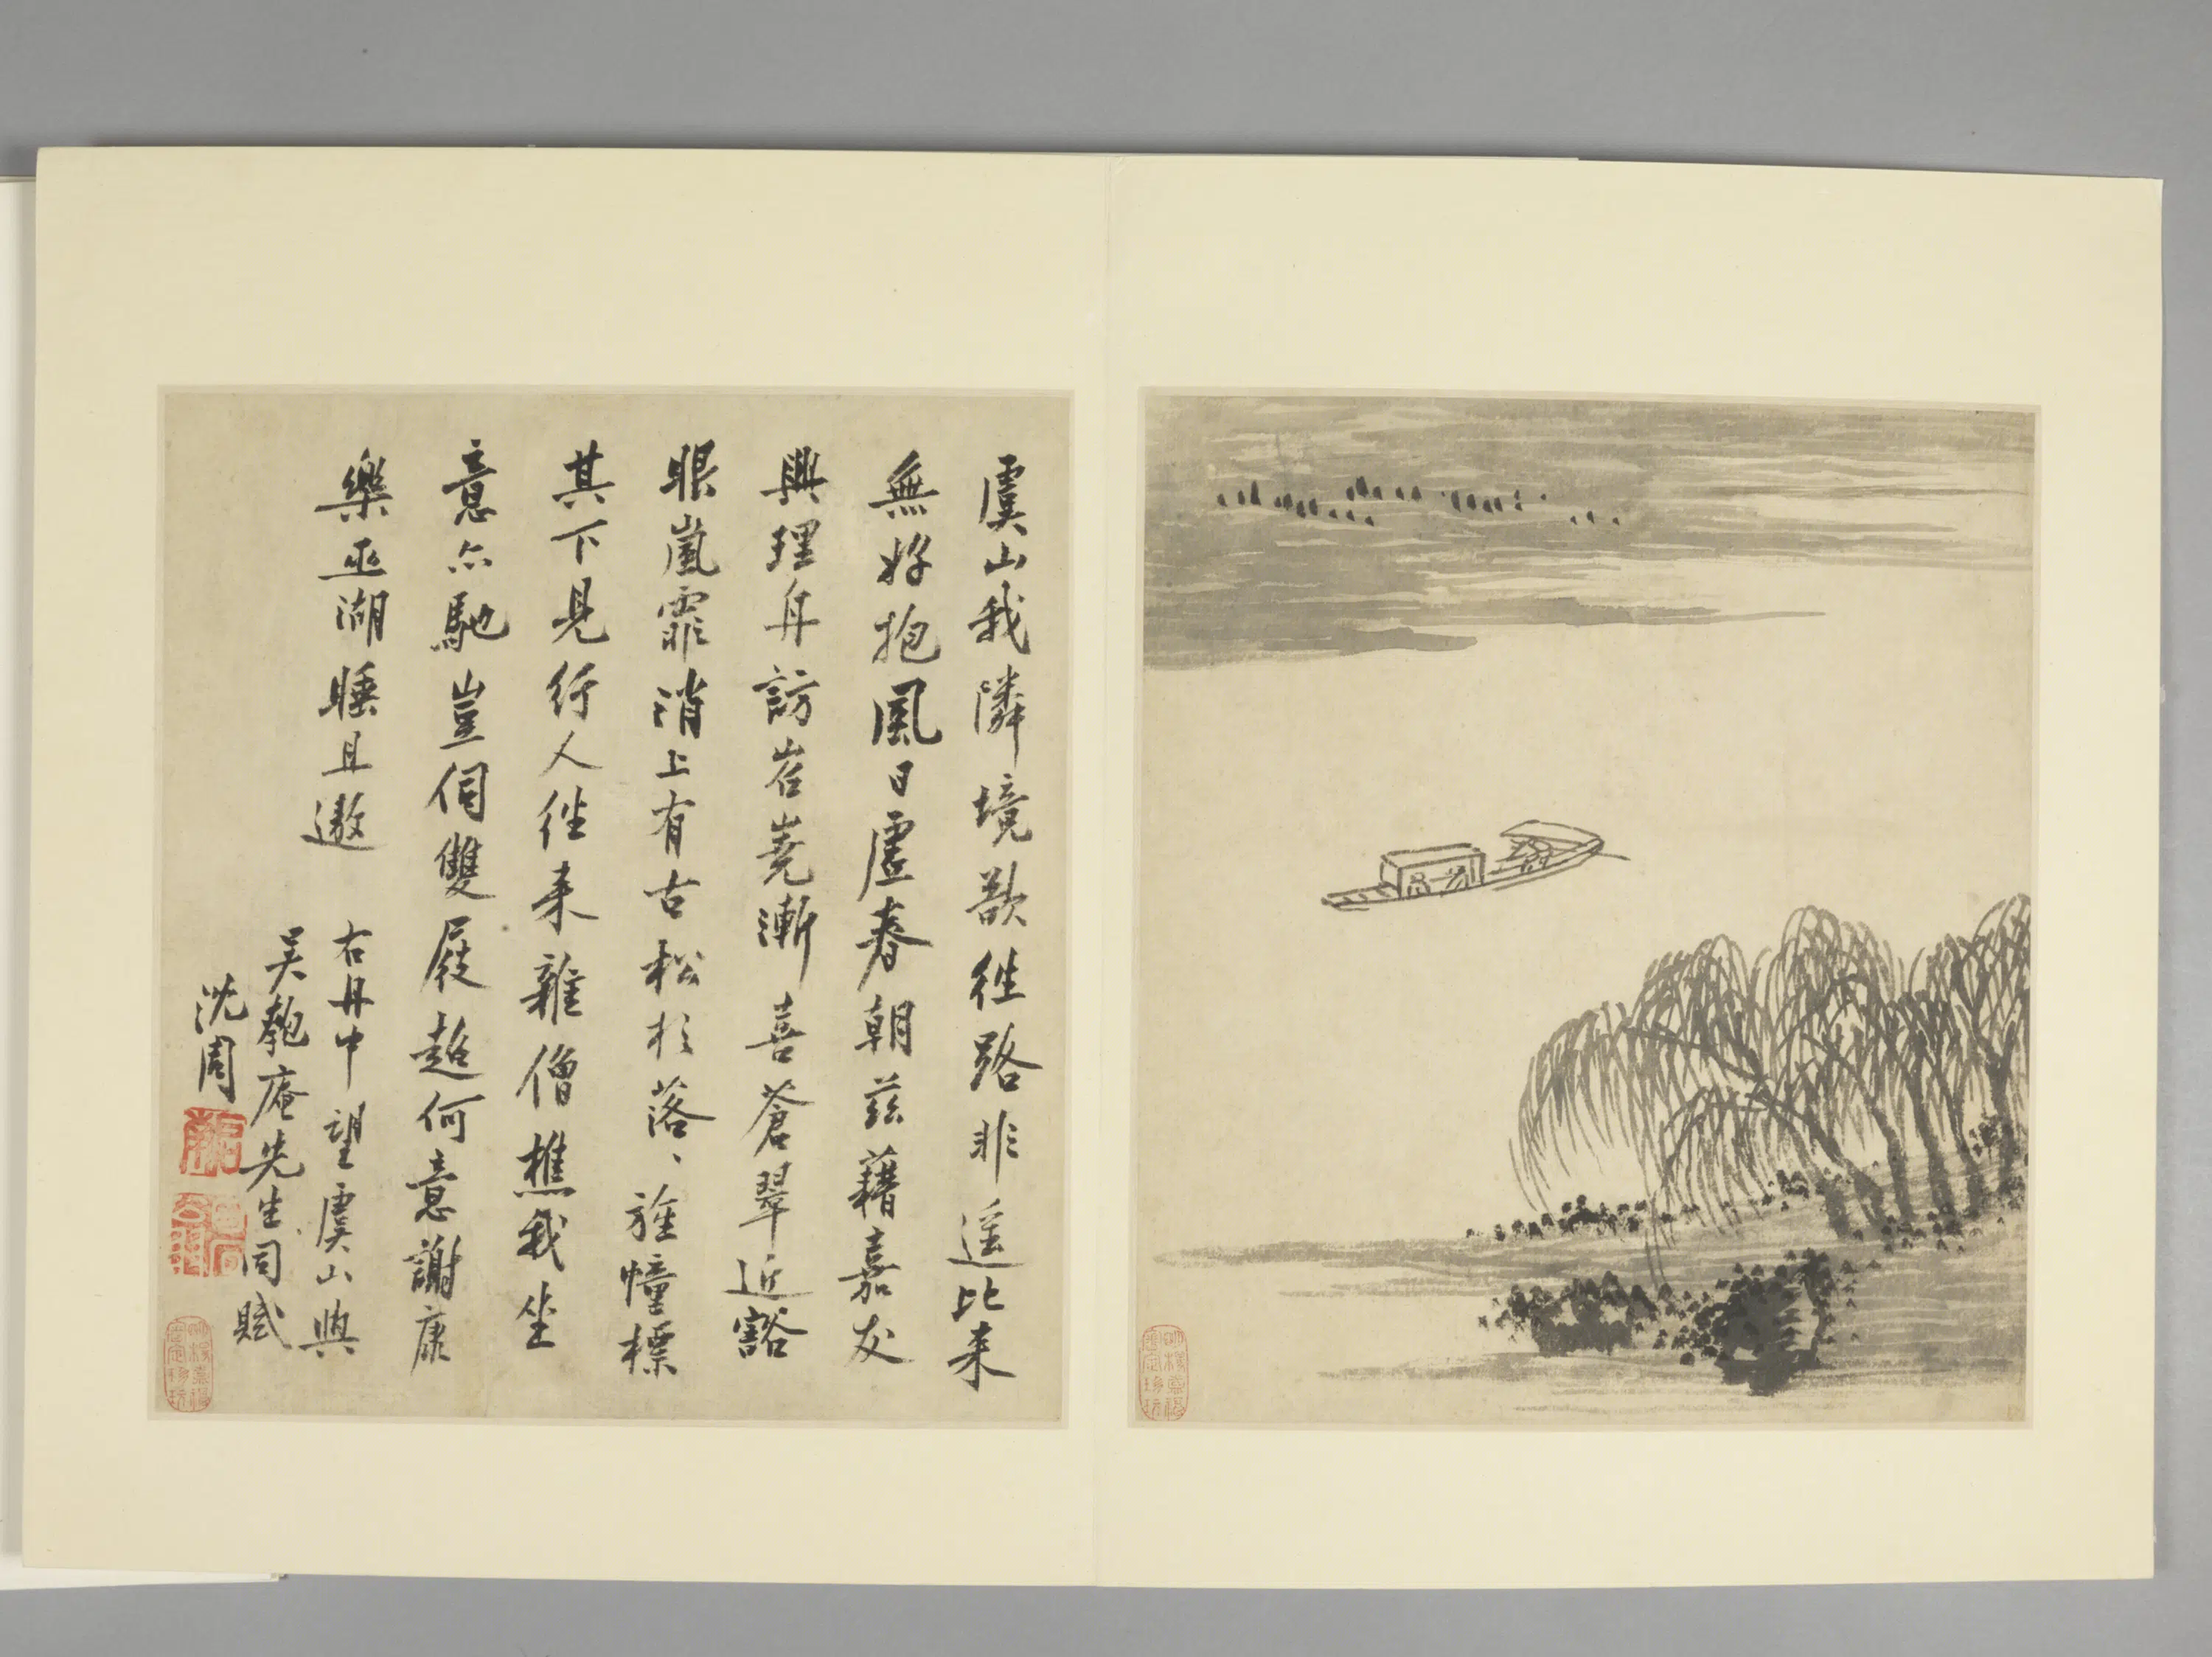 虞山我隣境欲往路非遥比来
無好抱風日虛春朝茲藉嘉友
興理舟訪岧嶤漸喜蒼翠近豁
眼嵐霏消上有古松杉落〻旌幢標
其下見行人往来雜僧樵我坐
意亦馳豈伺雙屐超何意謝康
樂巫湖睡且遨
右舟中望虞山與
吳匏庵先生同賦
沈周